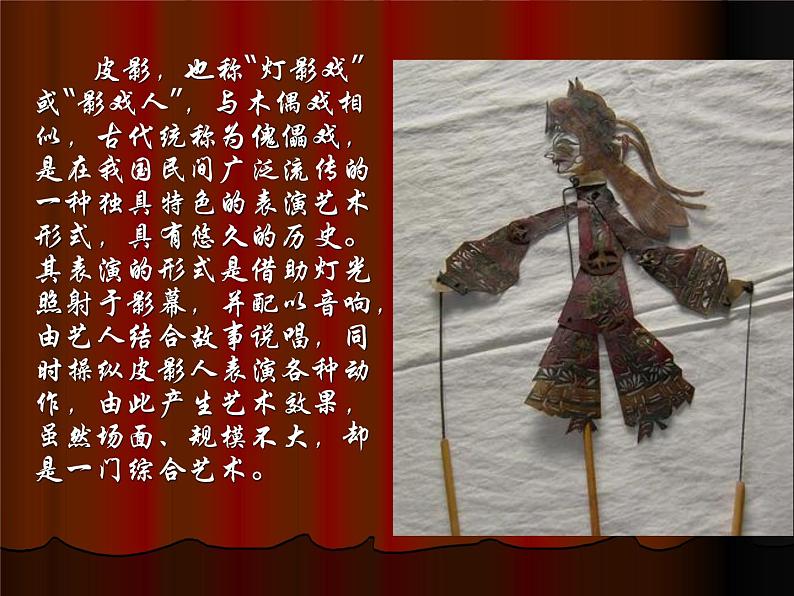 皮影，也称“灯影戏”
或“影戏人”，与木偶戏相
似，古代统称为傀儡戏，
是在我国民间广泛流传的
一种独具特色的表演艺术
形式，具有悠久的历史。
其表演的形式是借助灯光
照射于影幕，并配以音响，
由艺人结合故事说唱，同
时操纵皮影人表演各种动
作，由此产生艺术效果，
虽然场面、规模不大，却
是一门综合艺术。